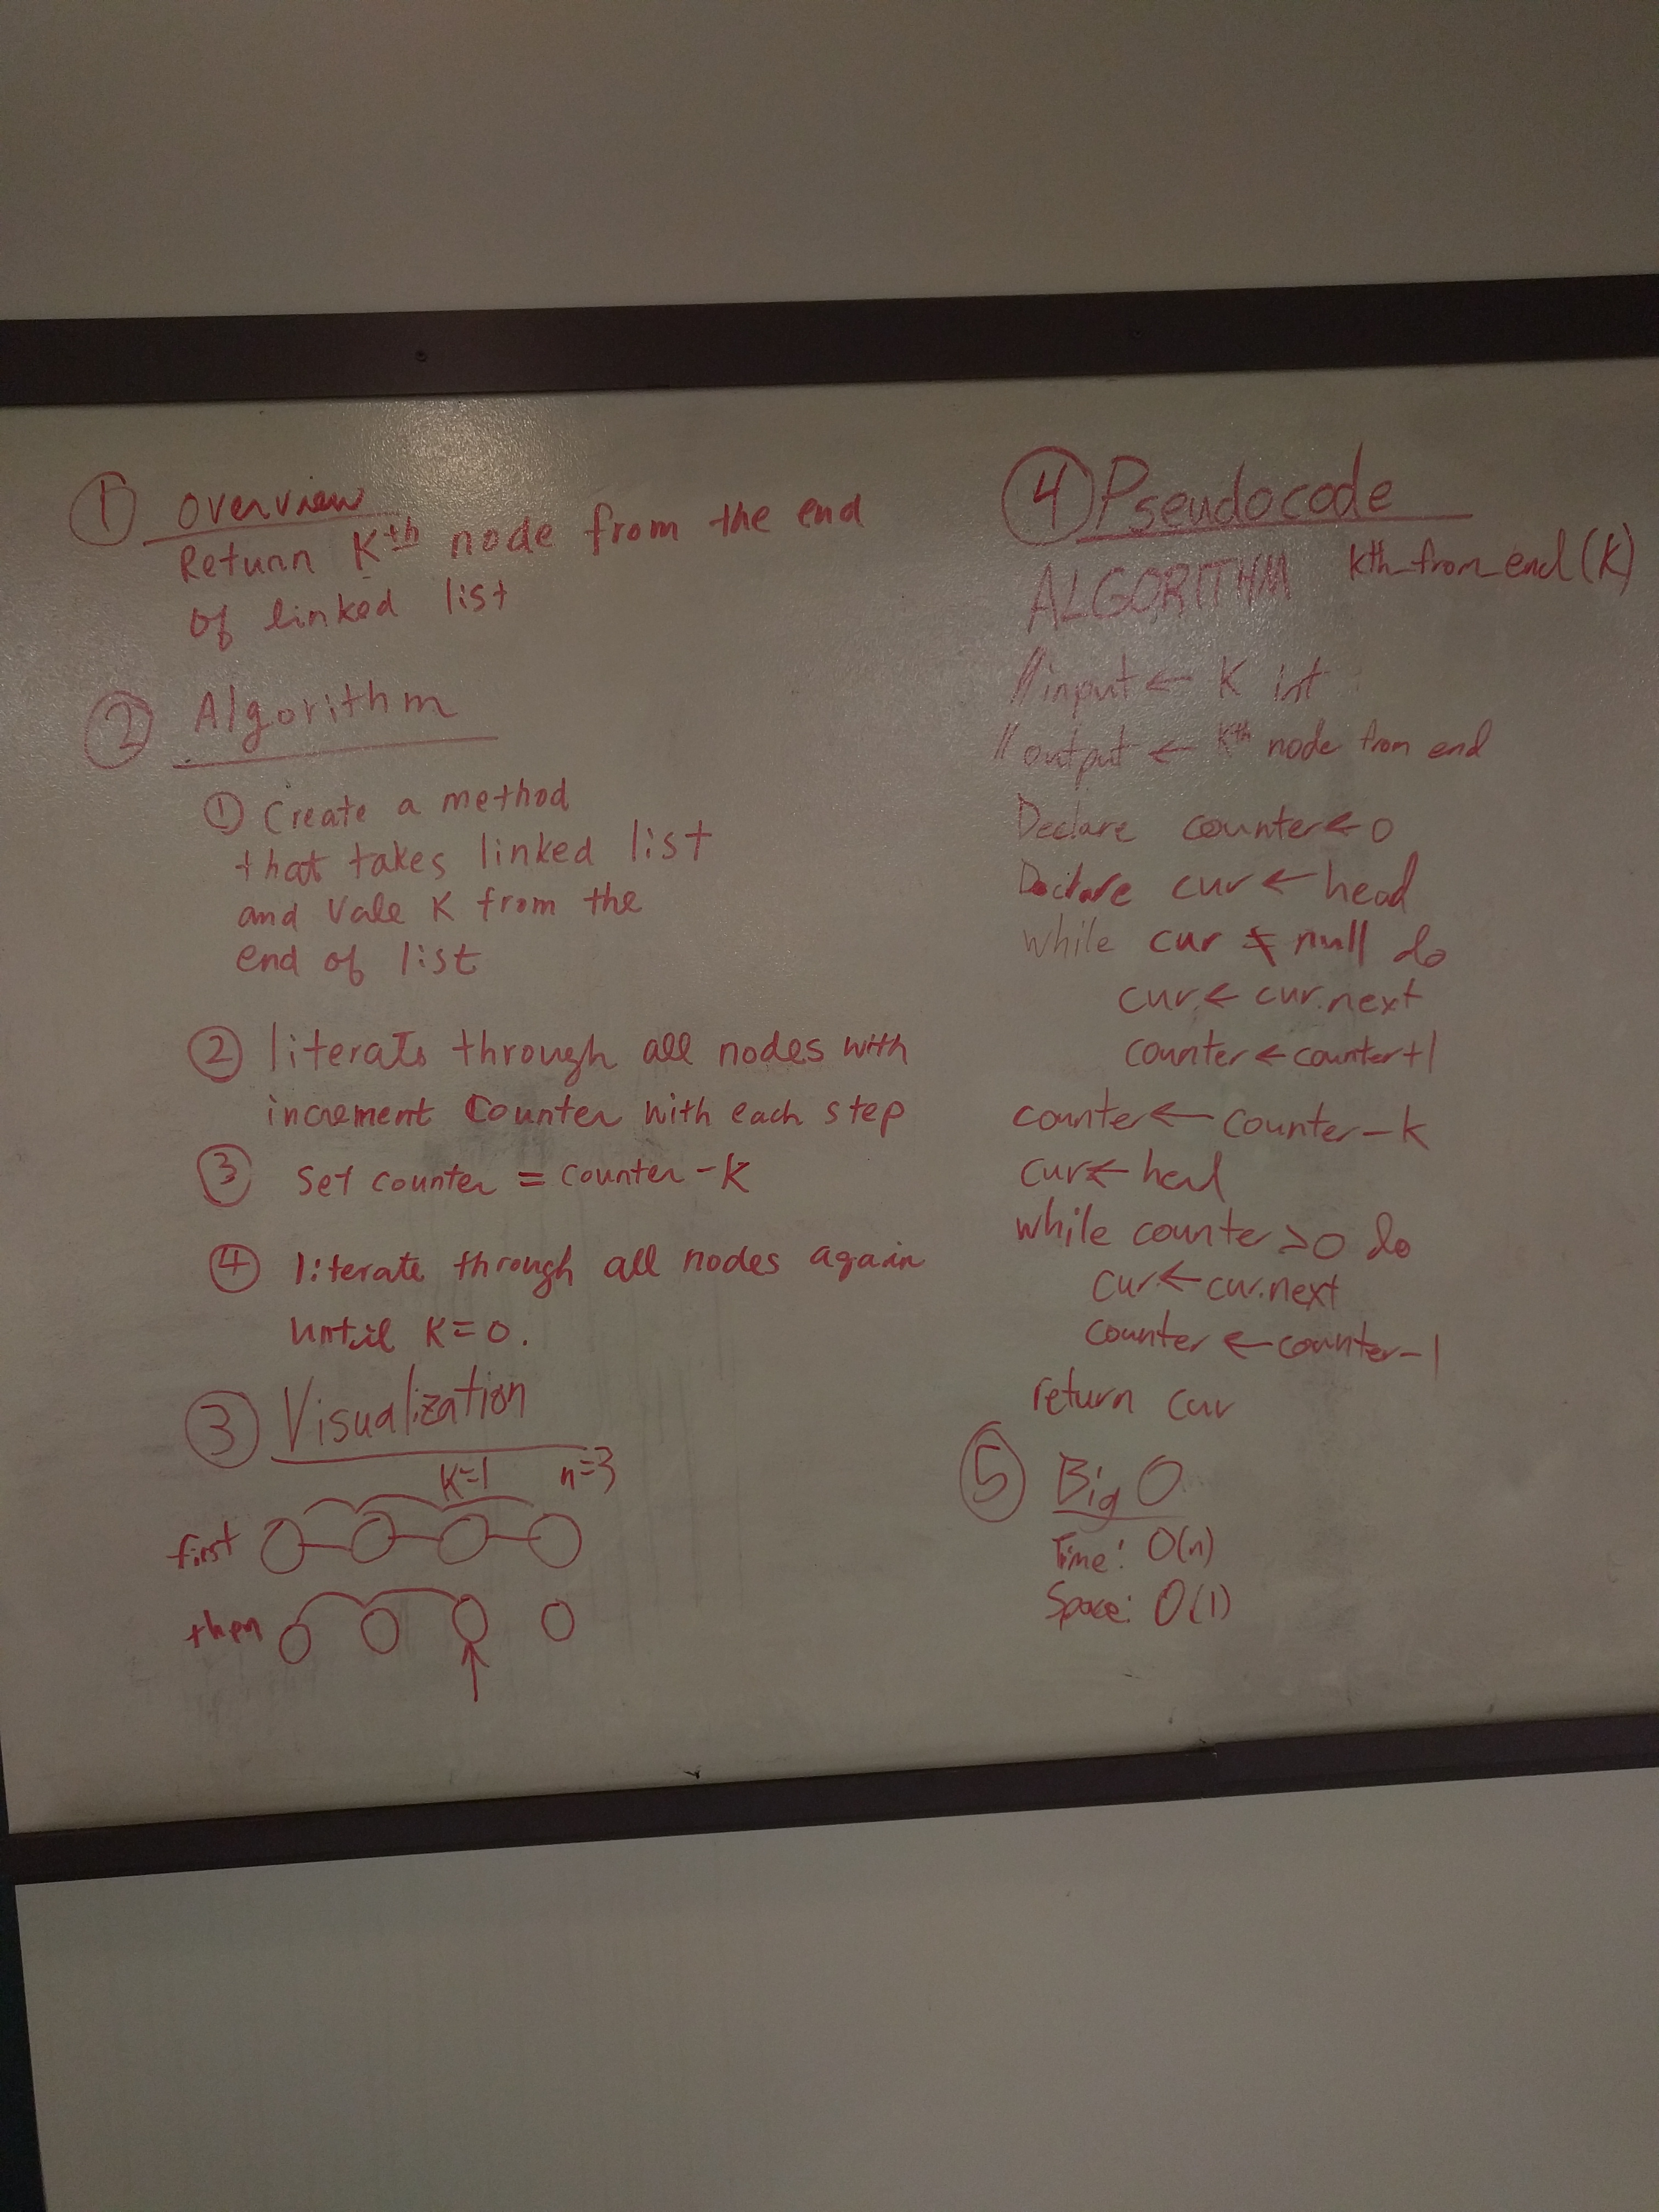 ① Overview
Return Kth node from the end
of linked list
② Algorithm
① Create a method
that takes linked list
and Vale K from the
end of list
② literate through all nodes with
increment counter with each step
③ Set counter = counter - K
④ literate through all nodes again
until K = 0.
③ Visualization
K=1 n=3
first
then
④ Pseudocode
ALGORITHM kth_from_end(k)
// input ← K int
// output ← Kth node from end
Declare counter ← 0
Declare cur ← head
while cur ≠ null do
cur ← cur.next
counter ← counter+1
counter ← counter - k
cur ← head
while counter > 0 do
cur ← cur.next
counter ← counter - 1
return cur
⑤ Big O
Time: O(n)
Space: O(1)